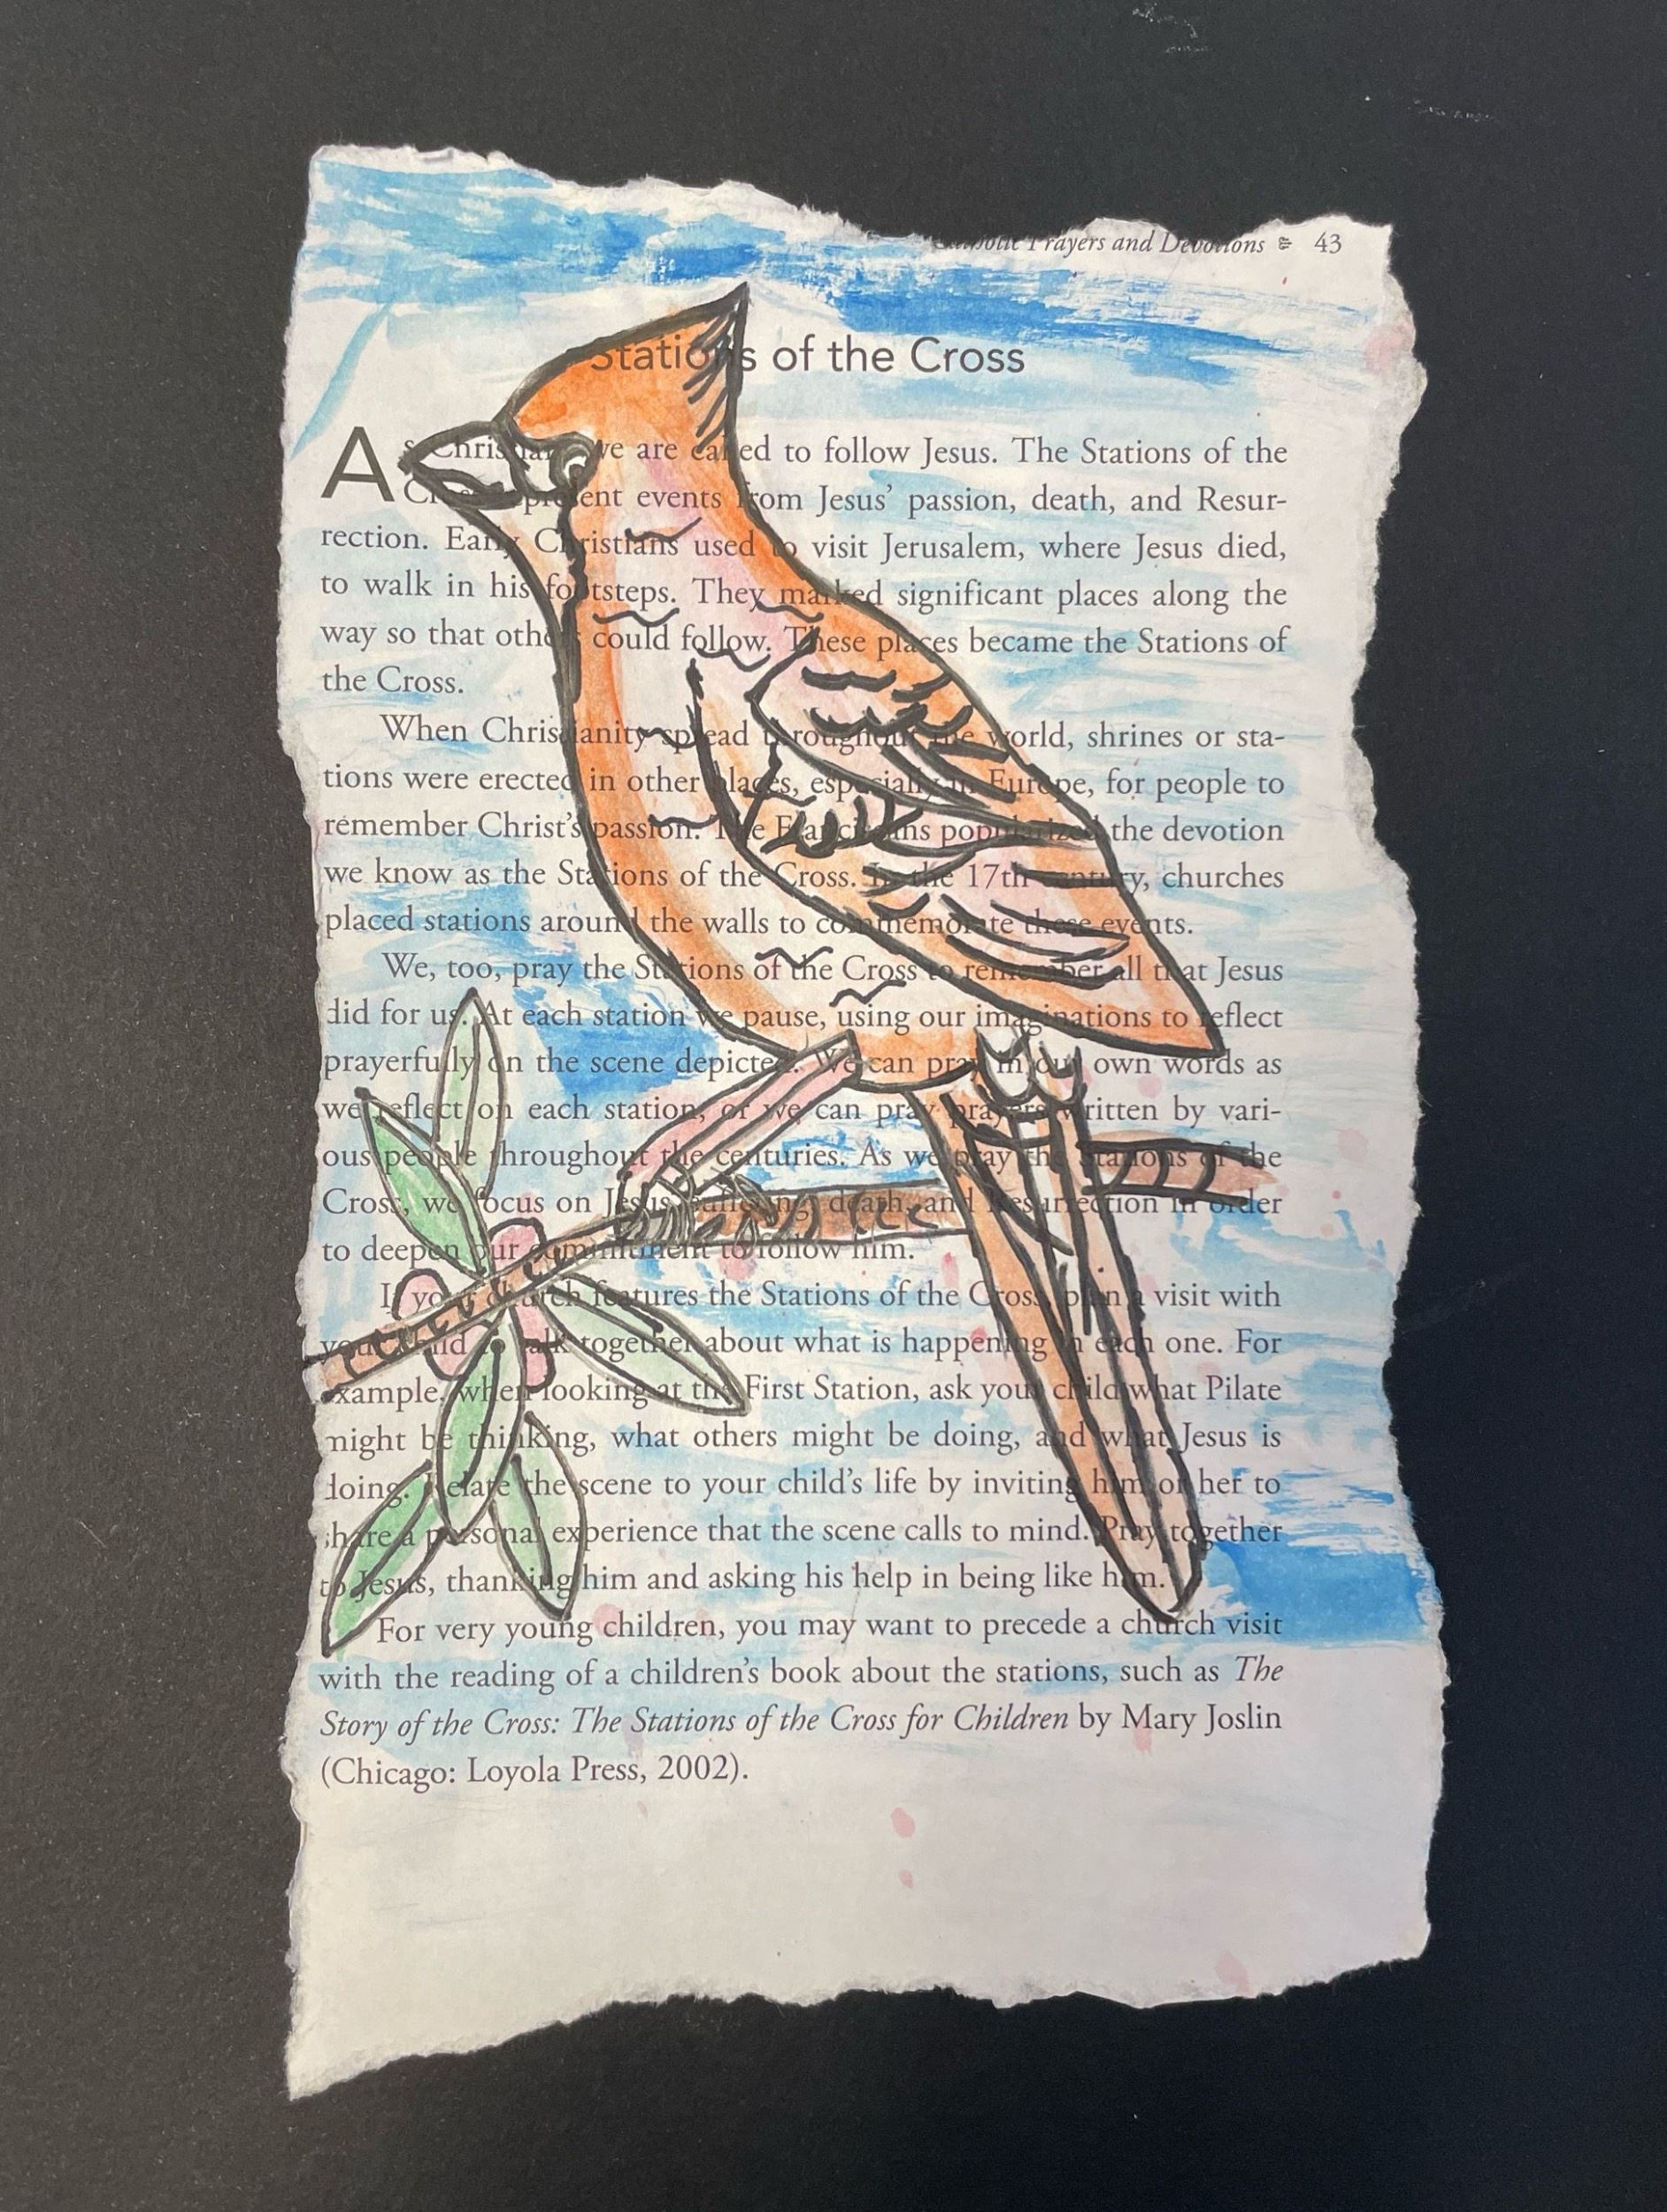 Catholic Prayers and Devotions 43
Stations of the Cross
As Christians, we are called to follow Jesus. The Stations of the
Cross present events from Jesus’ passion, death, and Resur-
rection. Early Christians used to visit Jerusalem, where Jesus died,
to walk in his footsteps. They marked significant places along the
way so that others could follow. These places became the Stations of
the Cross.
When Christianity spread throughout the world, shrines or sta-
tions were erected in other places, especially in Europe, for people to
remember Christ’s passion. The Franciscans popularized the devotion
we know as the Stations of the Cross. In the 17th century, churches
placed stations around the walls to commemorate these events.
We, too, pray the Stations of the Cross to remember all that Jesus
did for us. At each station we pause, using our imaginations to reflect
prayerfully on the scene depicted. We can pray in our own words as
we reflect on each station, or we can pray prayers written by vari-
ous people throughout the centuries. As we pray the Stations of the
Cross, we focus on Jesus’ suffering, death, and Resurrection in order
to deepen our commitment to follow him.
If your church features the Stations of the Cross, plan a visit with
your child to talk together about what is happening in each one. For
example, when looking at the First Station, ask your child what Pilate
might be thinking, what others might be doing, and what Jesus is
doing. Relate the scene to your child’s life by inviting him or her to
share a personal experience that the scene calls to mind. Pray together
to Jesus, thanking him and asking his help in being like him.
For very young children, you may want to precede a church visit
with the reading of a children’s book about the stations, such as The
Story of the Cross: The Stations of the Cross for Children by Mary Joslin
(Chicago: Loyola Press, 2002).